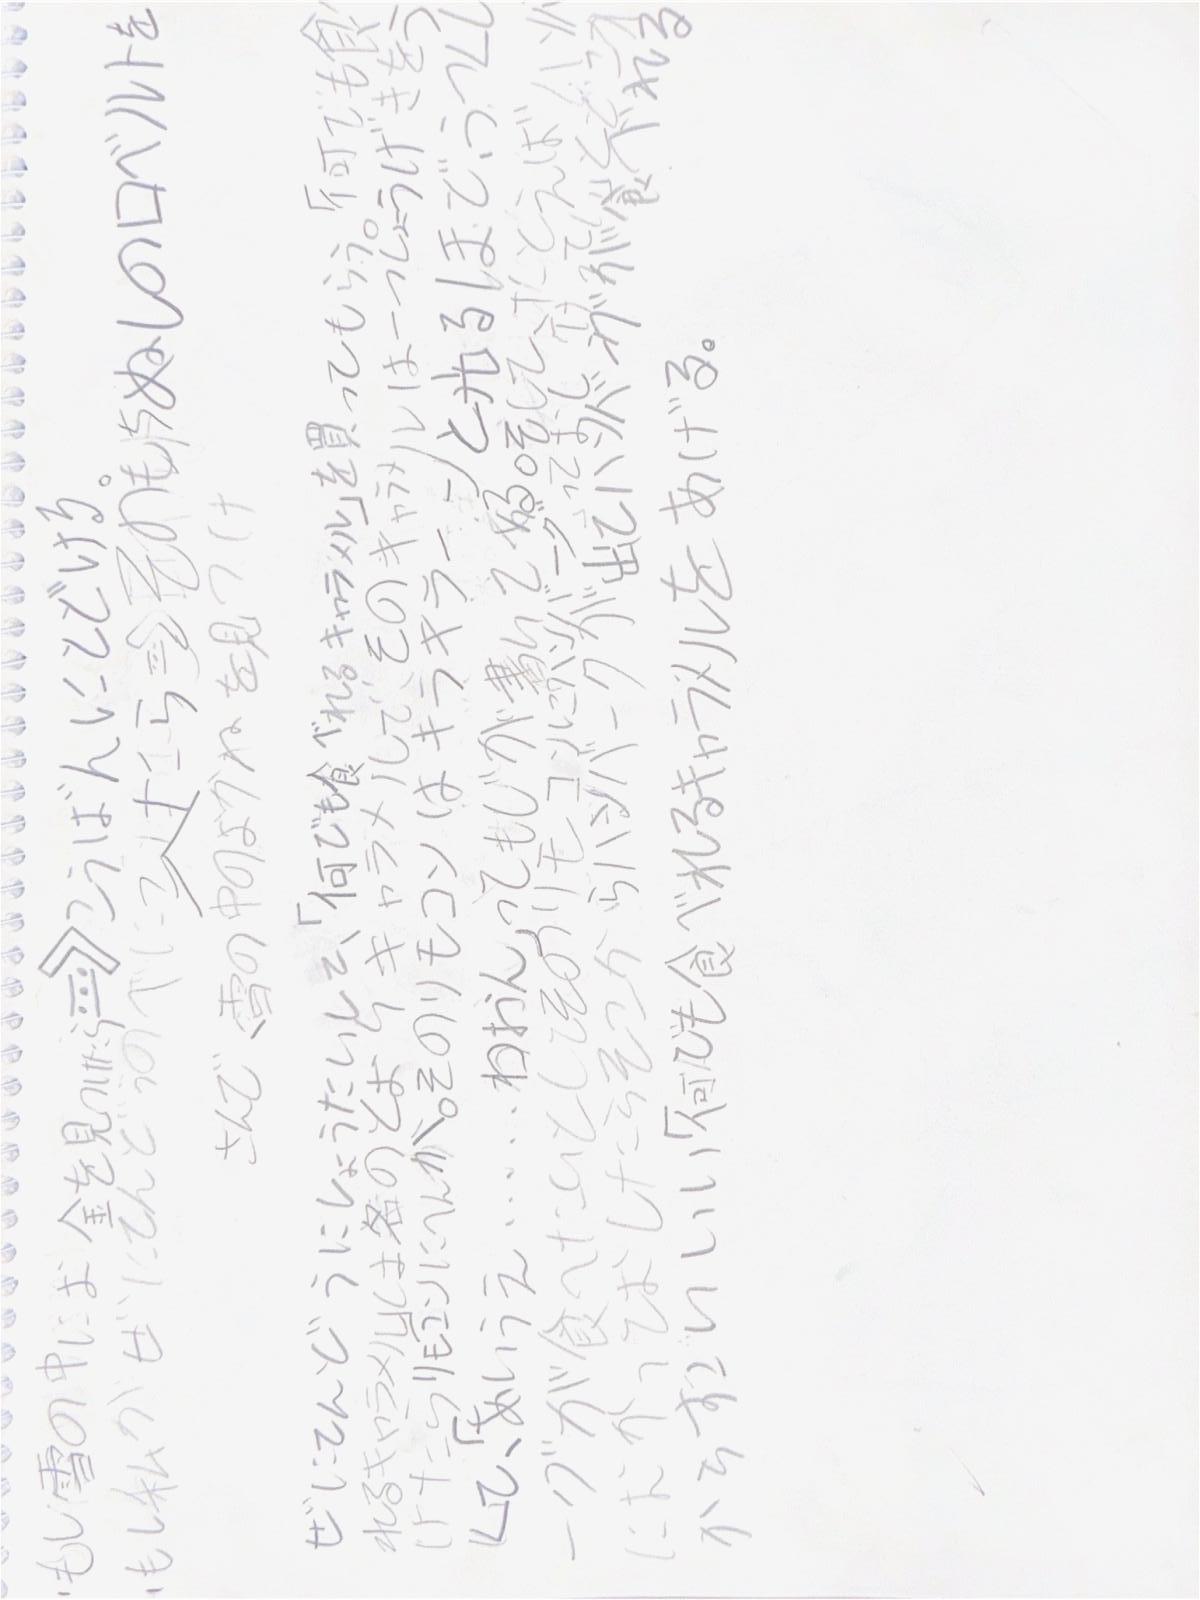 ・もし雪の中にお金を見つけたら⇒こうばんにとどける。
・もし私がゼにてんどうのべにってたら⇒そのもちぬしのロベルトを
さんで雪の中のおかねを見つけ
ゼにてんどうにしょうたいして、「何でも食べれるキャラメル」を買ってもらう。「何でも食
れるキャラメル」は名のとおりキャラメルで、そのキャラメルは一つしょうげきをう
けたらリモコンにへんか。そのリモコンはキラキラーンと光るほどうつく
しくて、「あいうえ……わおん」ってもじが書いてある。そしてたとえばハンバ
ーグが食べたいとしてそのリモコンにハンバーグってまじゅうでハンバーグ
にむかっておしたらそこからハンバーグが出てハンバーグが食べれる
からすごいいい「何でも食べれるキャラメルをあげる。